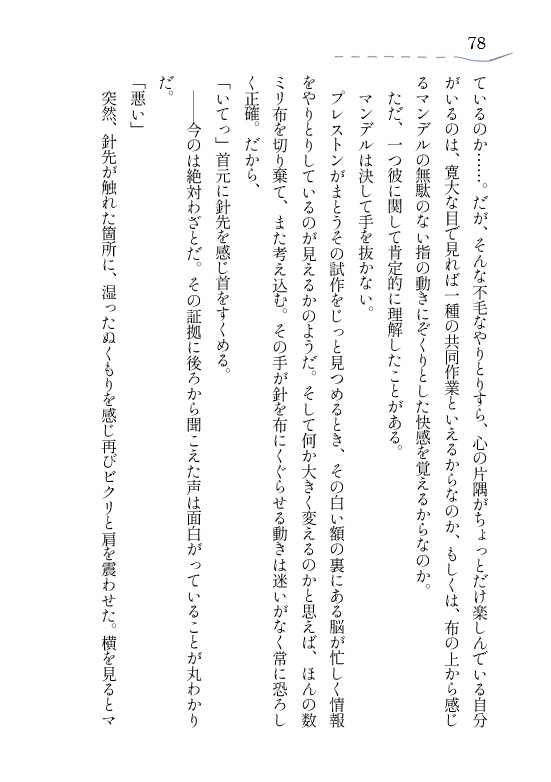 78
ているのか……。だが、そんな不毛なやりとりすら、心の片隅がちょっとだけ楽しんでいる自分
がいるのは、寛大な目で見れば一種の共同作業といえるからなのか、もしくは、布の上から感じ
るマンデルの無駄のない指の動きにぞくりとした快感を覚えるからなのか。
ただ、一つ彼に関して肯定的に理解したことがある。
マンデルは決して手を抜かない。
プレストンがまとうその試作をじっと見つめるとき、その白い額の裏にある脳が忙しく情報
をやりとりしているのが見えるかのようだ。そして何か大きく変えるのかと思えば、ほんの数
ミリ布を切り棄て、また考え込む。その手が針を布にくぐらせる動きは迷いがなく常に恐ろし
く正確。だから、
「いてっ」首元に針先を感じ首をすくめる。
――今のは絶対わざとだ。その証拠に後ろから聞こえた声は面白がっていることが丸わかり
だ。
「悪い」
突然、針先が触れた箇所に、湿ったぬくもりを感じ再びビクリと肩を震わせた。横を見るとマ